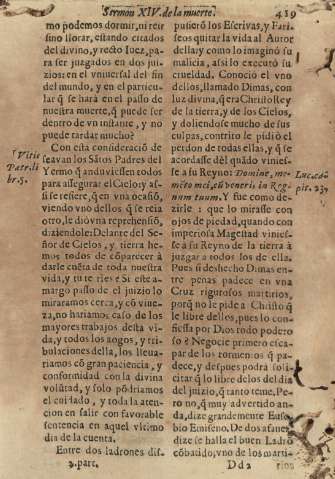 Sermon XIV. de la muerte. 419
mo podemos dormir, ni reir
sino llorar, estando citados
del divino, y recto Iuez, pa-
ra ser juzgados en dos jui-
zios: en el vniversal del fin
del mundo, y en el particu-
lar q̃ se hará en el passo de
nuestra muerte, q̃ puede ser
dentro de vn instante, y no
puede tardar mucho?
Con esta consideració de-
seavan los Sãtos Padres del
Yermo q̃ anduviessen todos
para assegurar el Cielo: y as-
si se refiere, q̃ en vna ocasiõ,
viendo vno dellos q̃ se reía
otro, le dió vna reprehensiõ,
diziendole: Delante del Se-
ñor de Cielos, y tierra he-
mos todos de cõparecer à
darle cuēta de toda nuestra
vida, y tu te ries? Si este a-
margo passo de el juizio lo
miraramos cerca, y cõ vive-
za, no hariamos caso de los
mayores trabajos desta vi-
da, y todos los aogos, y tri-
bulaciones della, los lleua-
riamos cõ gran paciencia, y
conformidad con la divina
volũtad, y solo põdriamos
el cuidado, y toda la aten-
cion en salir con favorable
sentencia en aquel vltimo
dia de la cuenta.
Entre dos ladrones dis-
3. part.
Vitis
Patr. li
br. 5.
pusieró los Escrivas, y Fari-
seos quitar la vida al Autor
della: y como lo imaginó su
malicia, assi lo executó su
crueldad. Conoció el vno
dellos, llamado Dimas, con
luz divina, q̃ era Christo Rey
de la tierra, y de los Cielos,
y doliendose mucho de sus
culpas, contrito se pidió el
perdon de todas ellas, y q̃ se
acordasse dèl quãdo vinies-
se a su Reyno: Domine, me-
mēto mei, cũ veneris in Reg-
num tuum. Y fue como de-
zirle: que lo mirasse con
ojos de piedad, quando con
imperiosa Magestad vinies-
se a su Reyno de la tierra à
juzgar a todos los de ella.
Pues si deshecho Dimas en-
tre penas padece en vna
Cruz rigurosos martirios,
porq̃ no le pide a Christo q̃
le libre delles, pues lo con-
fiessa por Dios todo podero
so? Negocie primero esca-
par de los tormentos q̃ pa-
dece, y despues podrá soli-
citar q̃ lo libre de los del dia
del juizio, q̃ tanto teme. Pe-
ro no, q̃ muy advertido an-
da, dize grandemente Euse-
bio Emiseno. De dos afanes
dize se halla el buen Ladrõ
cõbatido, vno de los marti-
Dd 2 rios
Luc. cá
pit. 23.